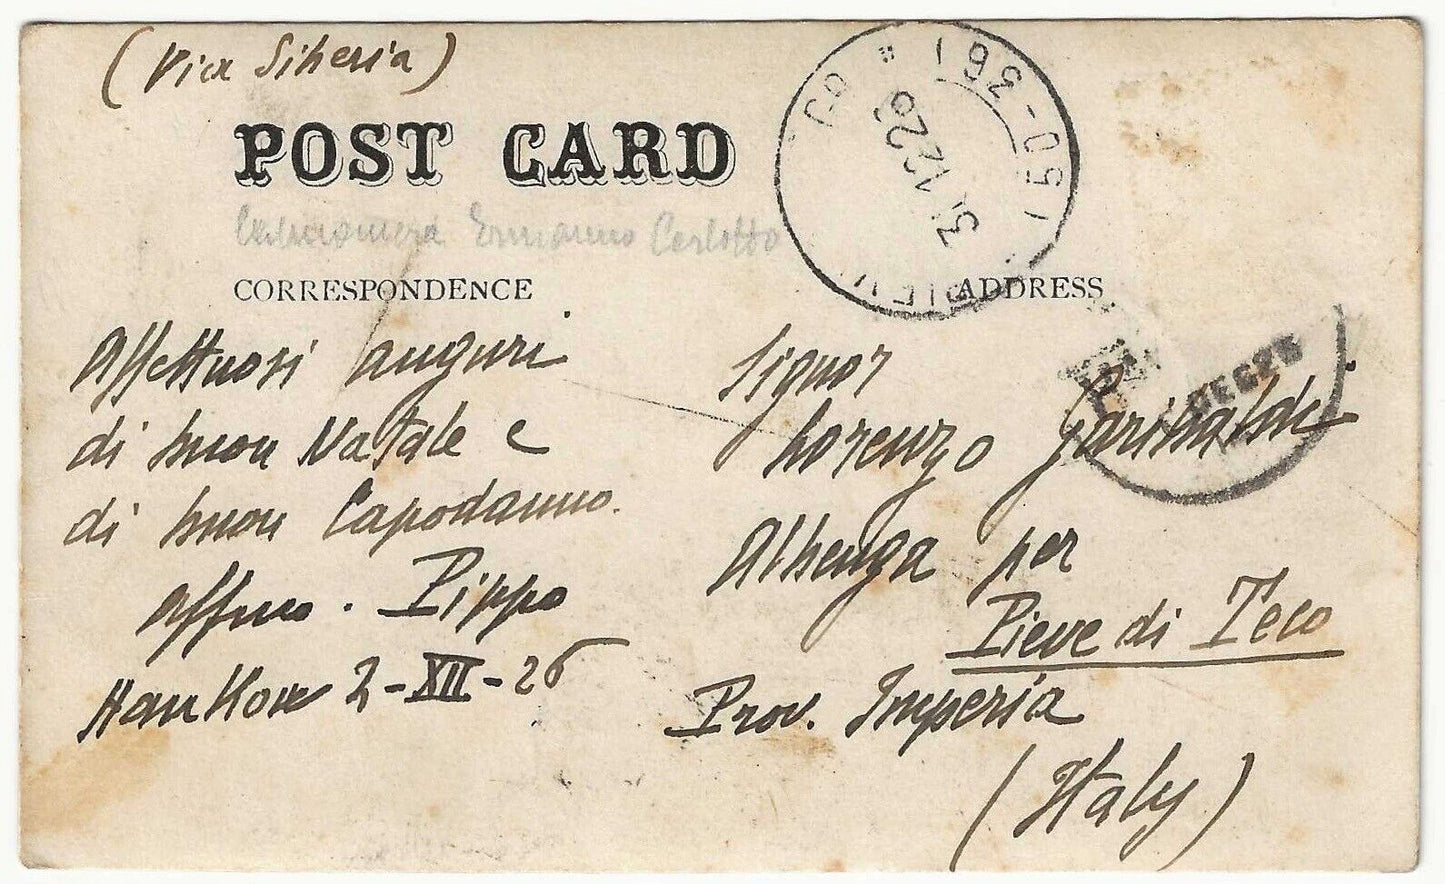 (Via Siberia)
POST CARD
Ermanno Carlotto
CORRESPONDENCE
ADDRESS
Affettuosi auguri
di buon Natale e
di buon Capodanno.
affmo. Pippo
Hankow 2-XII-26
Signor
Lorenzo Garibaldi
Albenga per
Pieve di Teco
Prov. Imperia
(Italy)
(150-361)
31.12.26
DEC 26